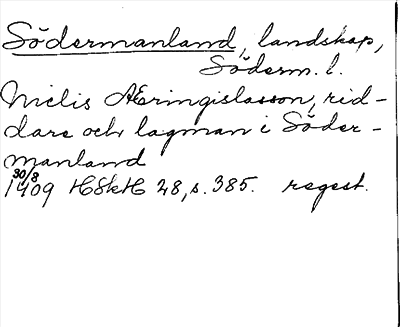 Södermanland, landskap,
Söderm. l.
Nielis Æringislasson, rid-
dare och lagman i Söder-
manland
30/8
1409 HSkH 28, s. 385. regest.